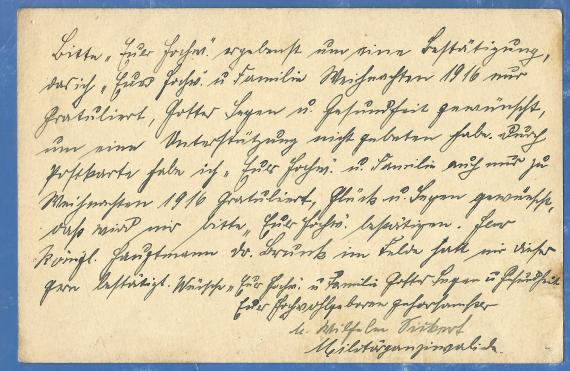 Bitte „Euer Hochw." ergebenst um eine Bestätigung,
daß ich „Euer Hochw." u Familie Weihnachten 1916 nur
Gratuliert, Gottes Segen u. Gesundheit gewünscht,
um eine Unterstützung nicht gebeten habe. Durch
Postkarte habe ich „Euer Hochw." u. Familie auch nur zu
Weihnachten 1916 Gratuliert, Glück u. Segen gewünscht,
daß wird mir bitte „Euer Hochw." bestätigen. Herr
Königl. Hauptmann dr. Brunk im Felde hatt mir dieses
gern bestätigt. Wünsche „Eur Hochw. u Familie Gottes Segen u Gesundheit
Euer Hochwohlgeboren gehorsamster
Wilhelm Seibert
Militärganzinvalide.